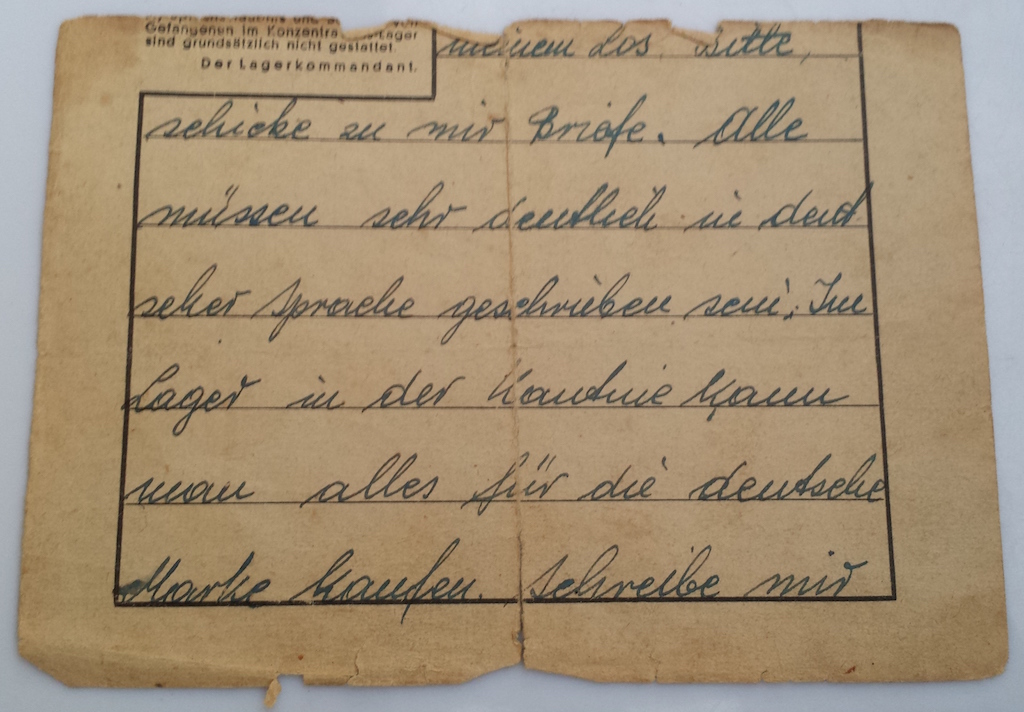 Gefangenen im Konzentra Lager
sind grundsätzlich nicht gestattet.
Der Lagerkommandant.
meinem Los. Bitte,
schicke zu mir Briefe. Alle
müssen sehr deutlich in deut
scher Sprache geschrieben sein. Im
Lager in der Kantine kann
man alles für die deutsche
Marke kaufen. Schreibe mir